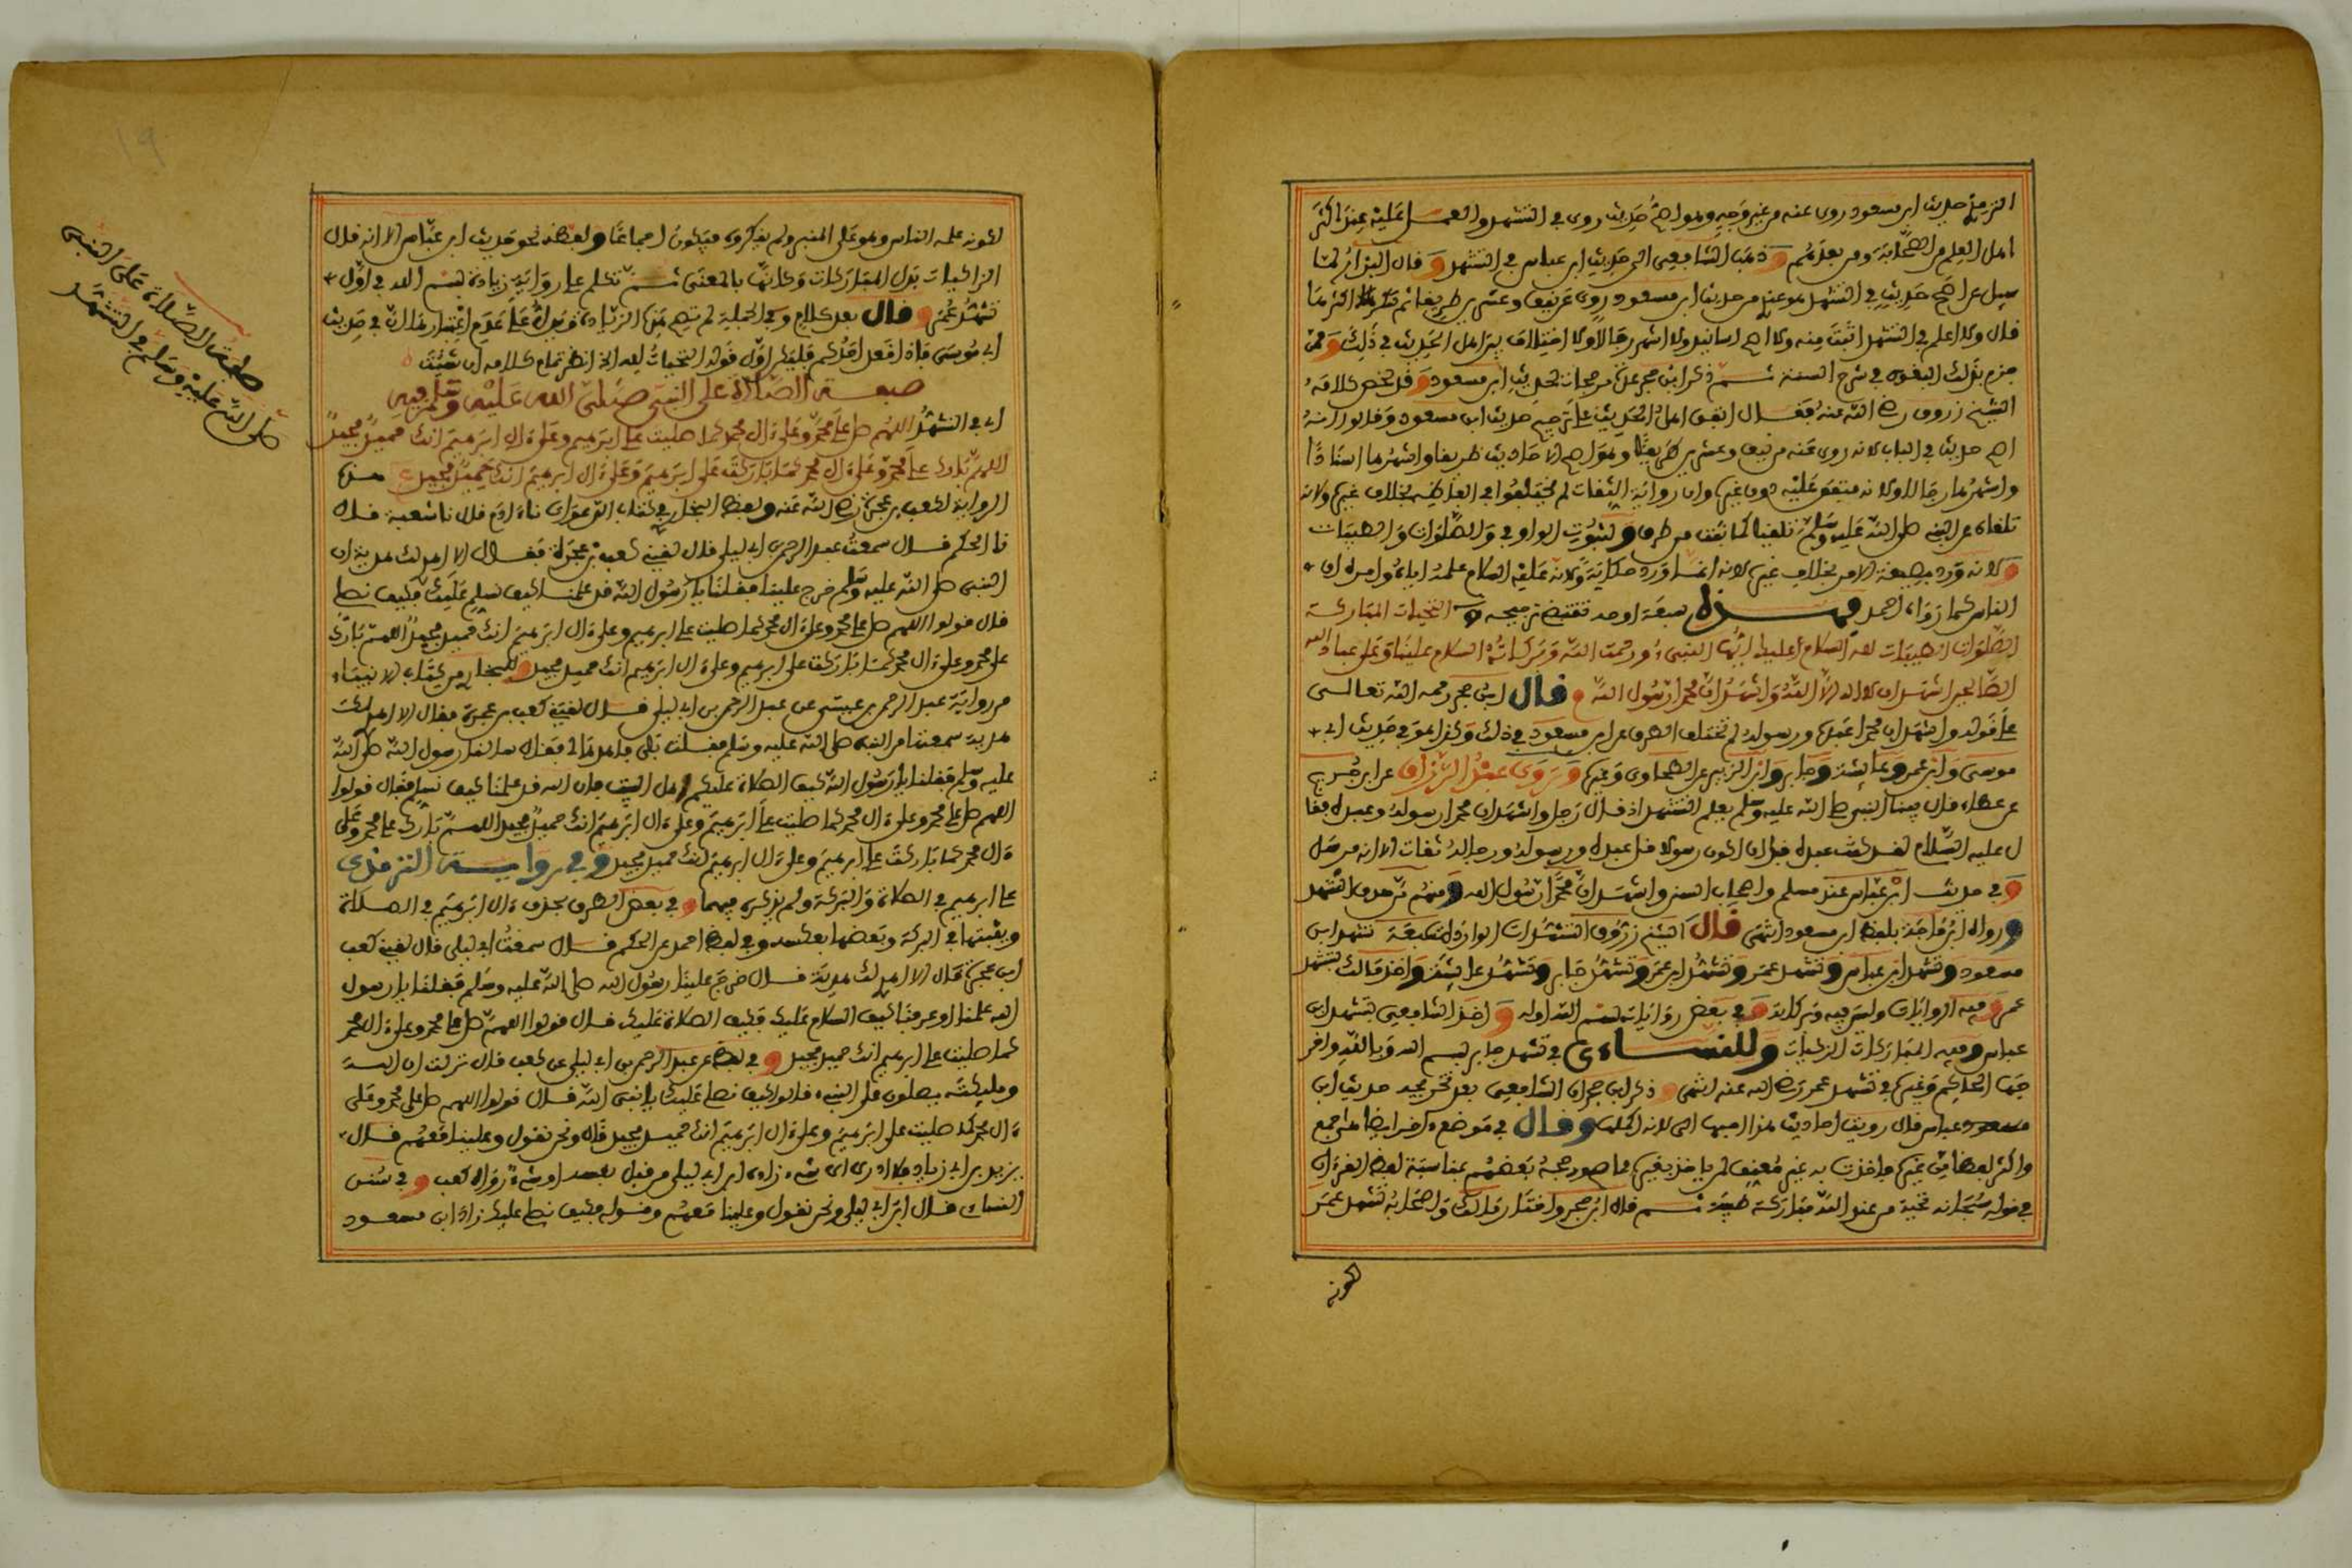 الترمذي حديث ابن مسعود روى عنه من غير وجه وهو اصح حديث روى في التشهد والعمل عليه عند اكثر
اهل العلم من الصحابة ومن بعدهم وذهب الشافعي الى حديث ابن عباس في التشهد وقال البزار لما
سيل عن اصح حديث في التشهد هو عندي من حديث ابن مسعود روى عن نيف وعشرين طريقا ثم سرد اكثرها
قال ولا اعلم في التشهد اثبت منه ولا اصح اسانيد ولا اشهر رجالا ولا اختلاف بين اهل الحديث في ذلك وممن
جزم بذلك البغوي في شرح السنة ثم ذكر ابن حجر عدة مرجحات لحديث ابن مسعود وقد لخص كلامه
الشيخ زروق رضي الله عنه فقال اتفق اهل الحديث على ترجيح حديث ابن مسعود وقالوا انه
اصح حديث في الباب لانه روى عنه من نيف وعشرين طريقا وهو اصح الاحاديث طريقا واشهرها اسنادا
واشهرها رجالا ولانه متفق عليه دون غيره وان رواية الثقات لم يختلفوا في الفاظه بخلاف غيره ولانه
تلقاه عن النبي صلى الله عليه وسلم تلقينا كما ثبت من طرق ولثبوت الواو في والصلوات والطيبات
ولانه ورد بصيغة الامر بخلاف غيره لانه انما ورد حكاية ولانه عليه السلام علمه اياه وامره ان
الناس كما رواه احمد فهذه سبعة اوجه تقتضي ترجيحه التحيات المباركة
الصلوات الطيبات لله السلام عليك ايها النبي ورحمت الله وبركاته السلام علينا وعلى عباد الله
الصالحين اشهد ان لا اله الا الله واشهد ان محمدا رسول الله قال ابن حجر رحمه الله تعالى
على قوله واشهد ان محمدا عبده ورسوله لم تختلف الطرق عن ابن مسعود في ذلك وكذا هو في حديث ابي
موسى وابن عمر وعائشة وجابر وابن الزبير عن الطحاوي وغيره وروى عبد الرزاق عن ابن جريج
عن عطاء قال بينا النبي صلى الله عليه وسلم يعلم التشهد اذ قال رجل واشهد ان محمدا رسوله وعبده فقا
ل عليه السلام لقد كنت عبدا قبل ان اكون رسولا قل عبده ورسوله ورجاله ثقات الا انه مرسل
وفي حديث ابن عباس عند مسلم واصحاب السنن واشهد ان محمدا رسول الله ومنهم من حذف اشهد
ورواه ابن ماجة بلفظ ابن مسعود انتهى قال الشيخ زروق التشهدات الواردة سبعة تشهد ابن
مسعود وتشهد ابن عباس وتشهد عمر وتشهد ابن عمر وتشهد جابر وتشهد عايشة واخذ مالك بتشهد
عمر وفيه الزاكيات وليس فيه وبركاته وفي بعض رواياته بسم الله اوله واخذ الشافعي بتشهد ابن
عباس وفيه المباركات الزكيات وللنساءي في تشهد جابر بسم الله وبالله واخر
جها الحاكم وغيره في تشهد عمر رضي الله عنه انتهى وذكر ابن حجر ان الشافعي بعد تخريجه حديث ابن
عباس قال رويت احاديث هذا احبها الي لانه اكملها وقال في موضع اخر
واكثر لفظا من غيره واخذت به غير معنف لمن ياخذ بغيره مما صح ورجحه بعضهم بمناسبة لفظ القرءان
في قوله سبحانه تحية من عند الله مباركة طيبة ثم قال ابن حجر واختار مالك واصحابه تشهد عمر
لكونه
١٩
لكونه علمه الناس وهو على المنبر ولم ينكروه فيكون اجماعا ولفظه نحو حديث ابن عباس الا انه قال
الزاكيات بدل المباركات وكانه بالمعنى ثم تكلم على رواية زيادة بسم الله في اول
تشهد عمر وقال بعد كلام وفي الجملة لم تصح هذه الزيادة ويدل على عدم اعتبارها ان في حديث
ابي موسى فاذا قعد احدكم فليكن اول قوله التحيات لله الخ انظر تمام كلامه ان شئت
صيغة الصلاة على النبي صلى الله عليه وسلم فيه
اي في التشهد اللهم صل على محمد وعلى ءال محمد كما صليت على ابرهيم وعلى ءال ابرهيم انك حميد مجيد
اللهم بارك على محمد وعلى ءال محمد كما باركت على ابرهيم وعلى ءال ابرهيم انك حميد مجيد هذه
الرواية لكعب بن عجرة رضي الله عنه ولفظ البخاري في كتاب الدعوات نا ءادم قال نا شعبة قال
نا الحكم قال سمعت عبد الرحمن بن ابي ليلى قال لقيني كعب بن عجرة فقال الا اهدي لك هدية ان
النبي صلى الله عليه وسلم خرج علينا فقلنا يا رسول الله قد علمنا كيف نسلم عليك فكيف نصلي
قال قولوا اللهم صل على محمد وعلى ءال محمد كما صليت على ابرهيم وعلى ءال ابرهيم انك حميد مجيد اللهم بارك
على محمد وعلى ءال محمد كما باركت على ابرهيم وعلى ءال ابرهيم انك حميد مجيد وللبخاري من كتاب الانبياء
من رواية عبد الرحمن بن عيسى عن عبد الرحمن بن ابي ليلى قال لقيني كعب بن عجرة فقال الا اهدي لك
هدية سمعتها من النبي صلى الله عليه وسلم فقلت بلى فاهدها لي فقال سالنا رسول الله صلى الله
عليه وسلم فقلنا يا رسول الله كيف الصلاة عليكم اهل البيت فان الله قد علمنا كيف نسلم فقال قولوا
اللهم صل على محمد وعلى ءال محمد كما صليت على ابرهيم وعلى ءال ابرهيم انك حميد مجيد اللهم بارك على محمد وعلى
ءال محمد كما باركت على ابرهيم وعلى ءال ابرهيم انك حميد مجيد وفي رواية الترمذي
على ابرهيم في الصلاة والبركة ولم يذكره فيهما وفي بعض الطرق بحذف ءال ابرهيم في الصلاة
وبثبتها في البركة وبعضها بعكسه وفي لفظ احمد عن الحكم قال سمعت ابن ابي ليلى قال لقيني كعب
ابن عجرة فقال الا اهدي لك هدية قال خرج علينا رسول الله صلى الله عليه وسلم فقلنا يا رسول
الله علمنا او عرفنا كيف السلام عليك فكيف الصلاة عليك قال قولوا اللهم صل على محمد وعلى ءال محمد
كما صليت على ابرهيم انك حميد مجيد وفي لفظ عن عبد الرحمن بن ابي ليلى عن كعب قال نزلت ان الله
وملئكته يصلون على النبي قالوا كيف نصلي عليك يا نبي الله قال قولوا اللهم صل على محمد وعلى
ءال محمد كما صليت على ابرهيم وعلى ءال ابرهيم انك حميد مجيد قال ونحن نقول وعلينا معهم قال
يزيد بن ابي زياد فلا ادري اي شيء زاده ابن ابي ليلى من قبل نفسه او شيء رواه كعب وفي سنن
النساءي قال ابن ابي ليلى ونحن نقول وعلينا معهم وقوله وكيف نصلي عليك زاد ابن مسعود
صيغة الصلاة على النبي
صلى الله عليه وسلم في التشهد